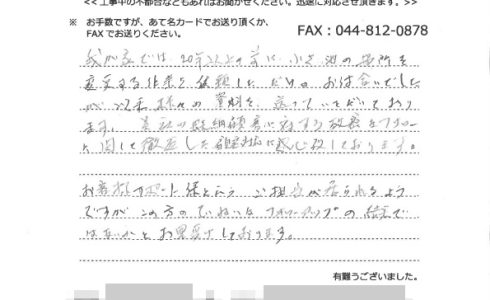 << 工事中の不都合などもあればお聞かせください。迅速に対応させて頂きます。>>
※ お手数ですが、あて名カードでお送り頂くか、
FAXでお送りください。
FAX：044-812-0878
我が家では20年以上も前に小さな の箇所を
変更する作業を依頼しただけのお付合いでした
が 以来 様々の資料を送っていただいており
ます。 貴社の 顧客に対する 
に関して徹底した 感心致しております。
お客様サポート様という ご担当が居られるよう
ですが この方のていねいなフォローアップの 
はないかとお見受けしております。
有難うございました。